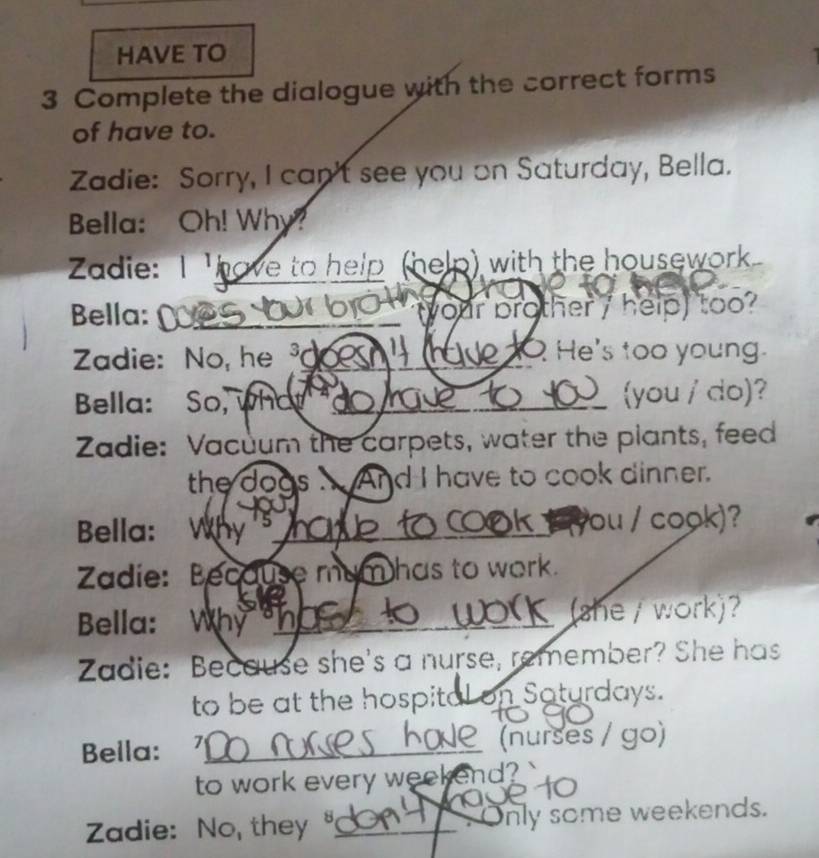 HAVE TO
3 Complete the dialogue with the correct forms
of have to.
Zadie: Sorry, I can't see you on Saturday, Bella.
Bella: Oh! Why?
Zadie: I 1 have to help (help) with the housework.
Bella: Does your brother have to help (your brother / help) too?
Zadie: No, he 3 doesn't have to. He's too young.
Bella: So, what do have to you (you / do)?
Zadie: Vacuum the carpets, water the plants, feed
the dogs ... And I have to cook dinner.
you
Bella: Why 5 have to cook (you / cook)?
Zadie: Because mum has to work.
she
Bella: Why 6 has to work (she / work)?
Zadie: Because she's a nurse, remember? She has
to be at the hospital on Saturdays.
to go
Bella: 7 Do nurses have (nurses / go)
to work every weekend?
have to
Zadie: No, they 8 don't. Only some weekends.